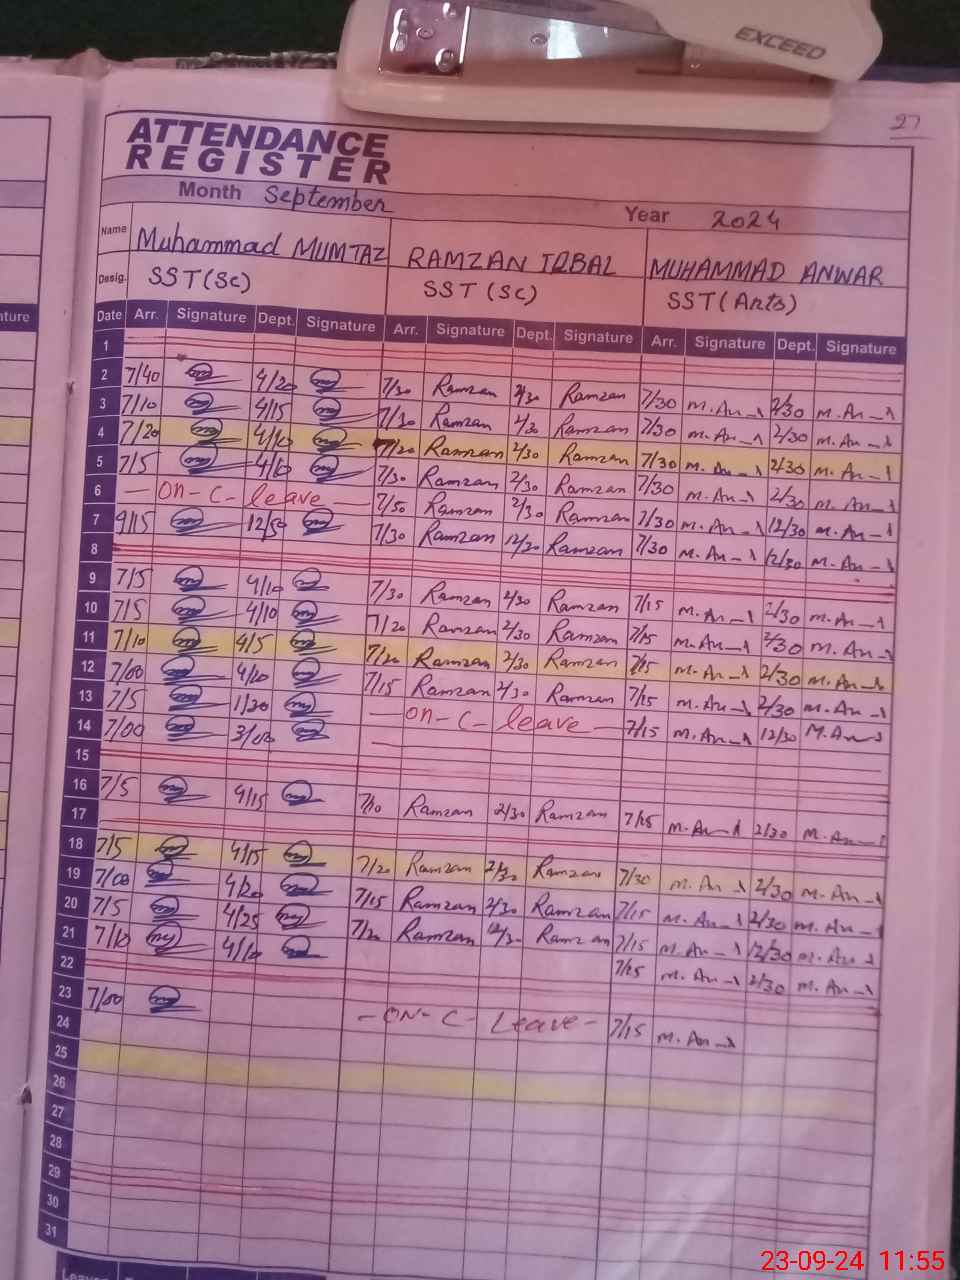 EXCEED
27
ATTENDANCE
REGISTER
Month September
Year 2024
Name Muhammad MUMTAZ RAMZAN IQBAL MUHAMMAD ANWAR
Desig. SST(Sc) SST (Sc) SST (Arts)
Date Arr. Signature Dept. Signature Arr. Signature Dept. Signature Arr. Signature Dept. Signature
1
2 7/40 4/20 7/30 Ramzan 2/30 Ramzan 7/30 M.An 2/30 M.An
3 7/10 4/15 7/30 Ramzan 2/30 Ramzan 7/30 M.An 2/30 M.An
4 7/20 7/20 Ramzan 2/30 Ramzan 7/30 M.An 2/30 M.An
5 7/5 4/10 7/30 Ramzan 2/30 Ramzan 7/30 M.An 2/30 M.An
6 - On - C - leave - 7/30 Ramzan 2/30 Ramzan 7/30 M.An 12/30 M.An
7 9/15 12/50 7/30 Ramzan 12/30 Ramzan 7/30 M.An 12/30 M.An
8
9 7/5 4/10 7/30 Ramzan 2/30 Ramzan 7/15 M.An 2/30 M.An
10 7/5 4/10 7/20 Ramzan 2/30 Ramzan 7/15 M.An 2/30 M.An
11 7/10 4/5 7/20 Ramzan 2/30 Ramzan 7/15 M.An 2/30 M.An
12 7/00 4/20 7/15 Ramzan 2/30 Ramzan 7/15 M.An 2/30 M.An
13 7/5 1/30 - On - C - leave - 7/15 M.An 12/30 M.An
14 7/00 3/00
15
16 7/5 4/15 7/10 Ramzan 2/30 Ramzan 7/15 M.An 2/30 M.An
17
18 7/5 4/15 7/20 Ramzan 2/30 Ramzan 7/30 M.An 2/30 M.An
19 7/00 4/20 7/15 Ramzan 2/30 Ramzan 7/15 M.An 2/30 M.An
20 7/5 4/25 7/20 Ramzan 12/30 Ramzan 7/15 M.An 12/30 M.An
21 7/10 4/10 7/15 M.An 2/30 M.An
22
23 7/00 - ON - C - Leave - 7/15 M.An
24
25
26
27
28
29
30
31
23-09-24 11:55